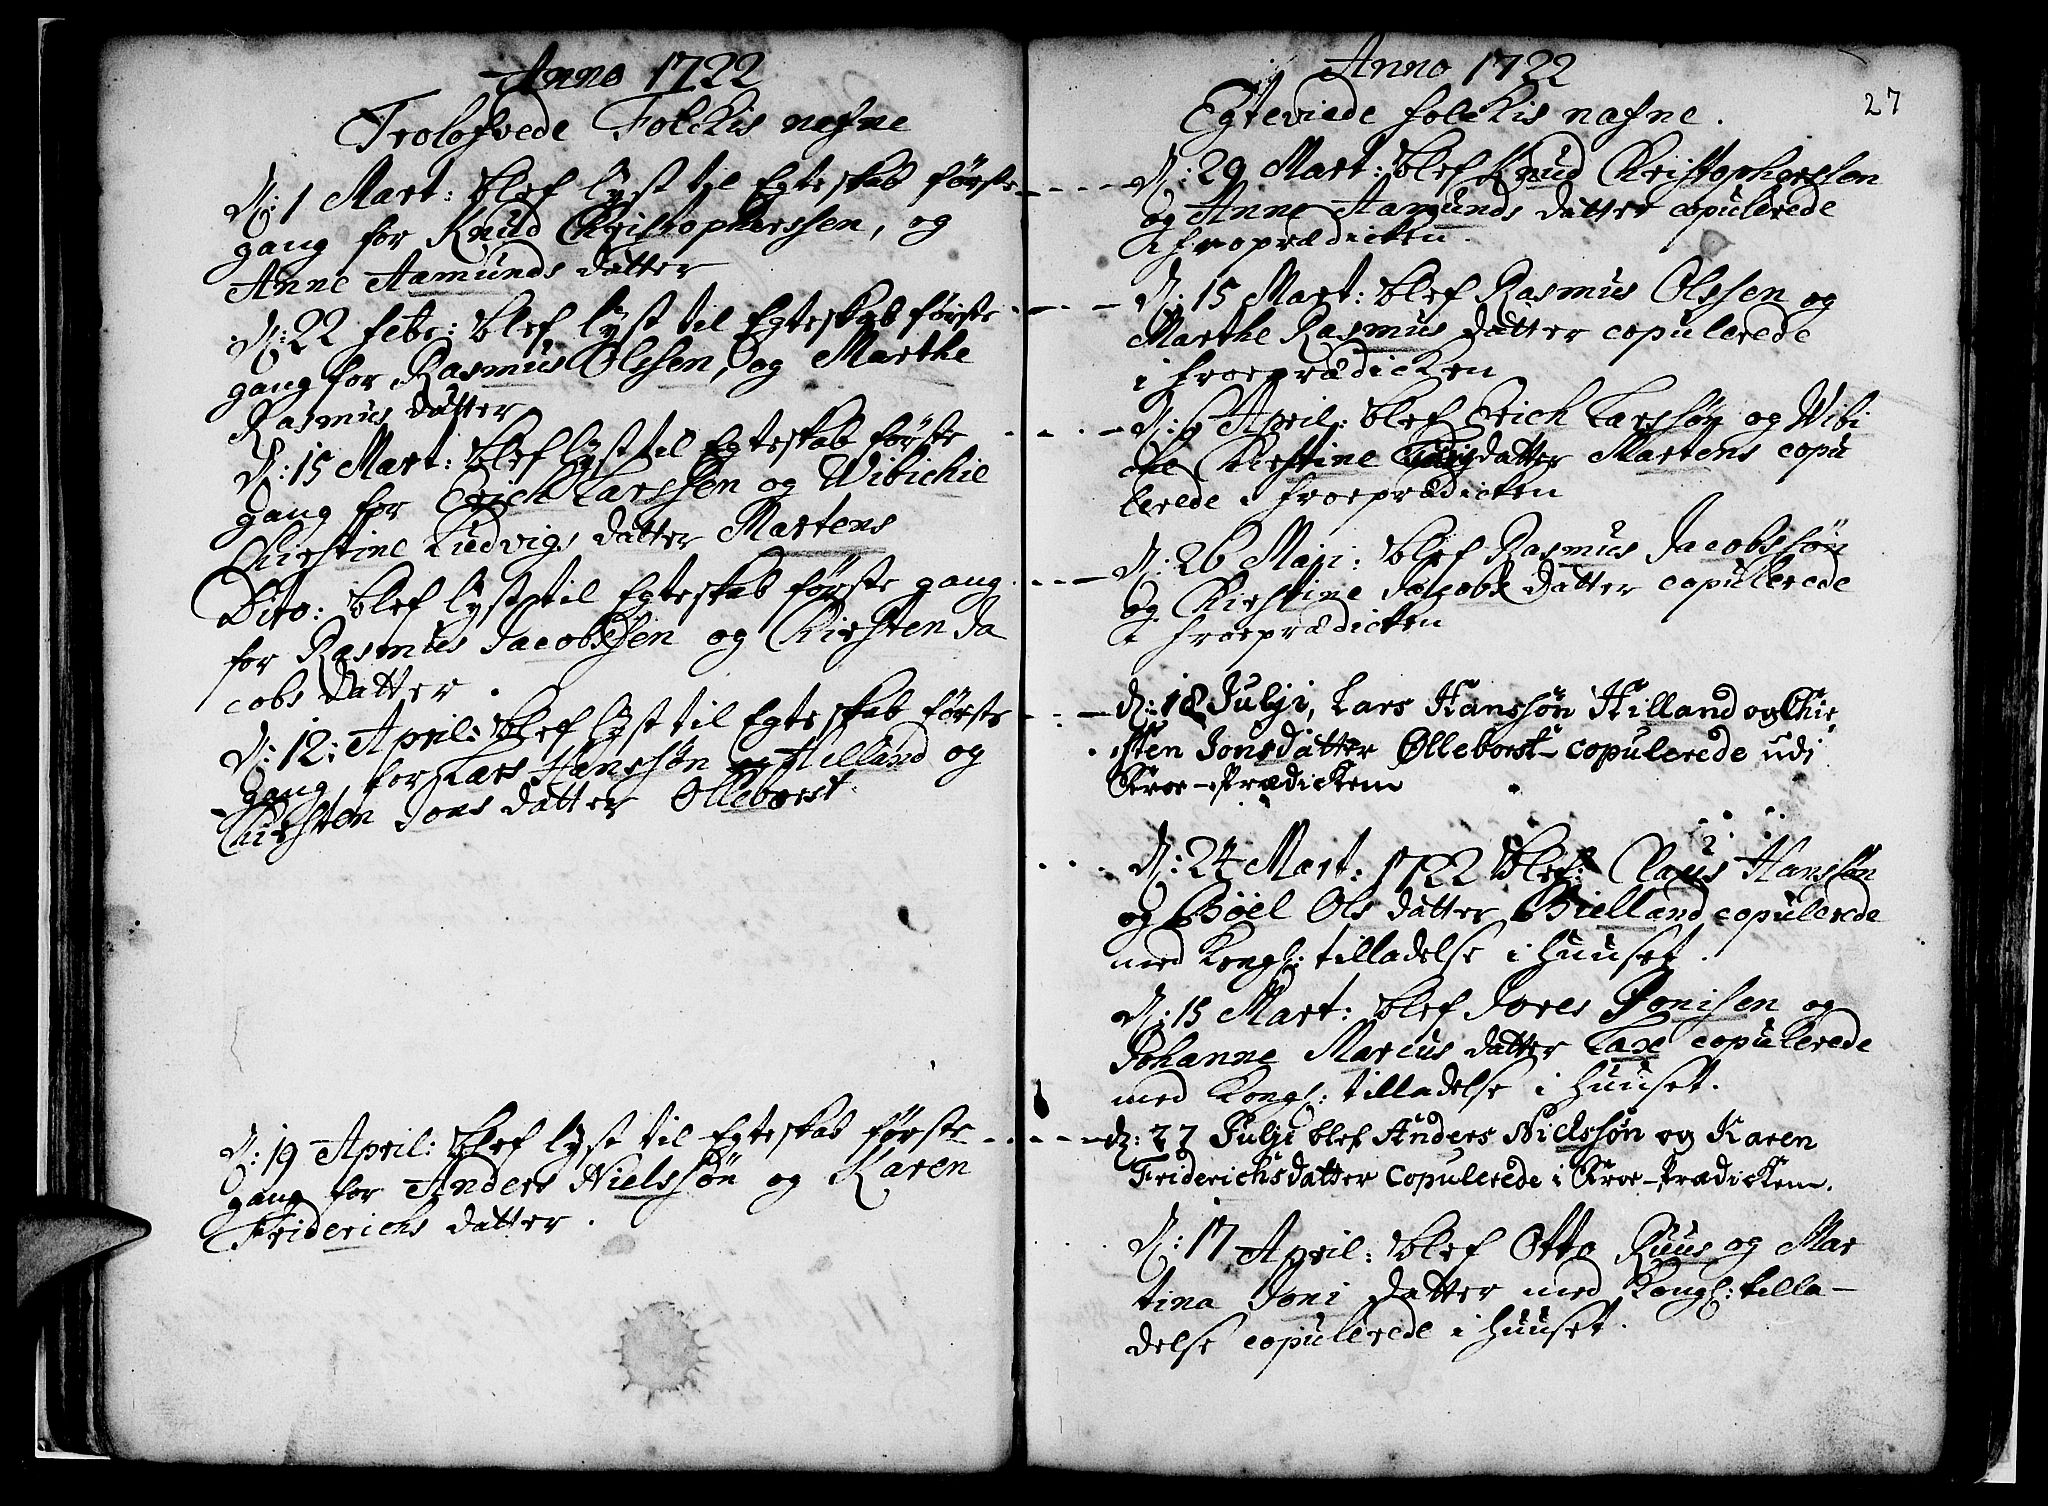 Anno 1722
Trolofvede Folckis nafne
D: 1 Mart: blef lyst til Egteskab første
gang for Knud Christophersen, og
Anne Aamunds datter
D: 22 Febr: blef lyst til Egteskab første
gang for Rasmus Olssen, og Marthe
Rasmus datter
D: 15 Mart: blef lyst til Egteskab første
gang for Erich Larssen og Wibichie
Chirstine Ludvigs datter Martens
Dito: blef lyst til Egteskab første gang
for Rasmus Jacobssen og Chirsten Ja
cobs datter.
D: 12: April: blef lyst til Egteskab første
gang for Lars Hanssøn Hilland og
Chirsten Jons datter Ølleborst.
D: 19 April: blef lyst til Egteskab første
gang for Anders Nielssøn og Karen
Friderichs datter.
27
Anno 1722
Egteviede folckis nafne.
D: 29 Mart: blef Knud Christophersson
og Anne Aamunds datter copulerede
i froprædicken.
D: 15 Mart: blef Rasmus Olssen og
Marthe Rasmus datter copulerede
i froeprædicken
D: 6 April: blef Erich Larssøn og Wibi
che Chirstine datter Martens copu
lerede i froeprædicken
D: 26 Maji: blef Rasmus Jacobssøn
og Chirstine Jacobs datter copulerede
i froeprædicken
D: 18 Julji, Lars Hanssøn Hilland og Chir
sten Jonsdatter Ølleborst copulerede udi
Froe-Prædicken
D: 24 Mart: 1722 blef Claus Hanssøn
og Bøel Ols datter Bielland copulerede
med Kongl: tilladelse i Huuset.
D: 15 Mart: blef Jores Jonissen og
Johanne Marcus datter Laxe copulerede
med Kongl: tilladelse i Huuset.
D: 27 Julji blef Anders Nielssøn og Karen
Friderichsdatter Copulerede i Froe-Prædicken.
D: 17 April: blef Otto Ruus og Mar
tina Joni datter med Kongl: tilla-
delse copulerede i Huuset.